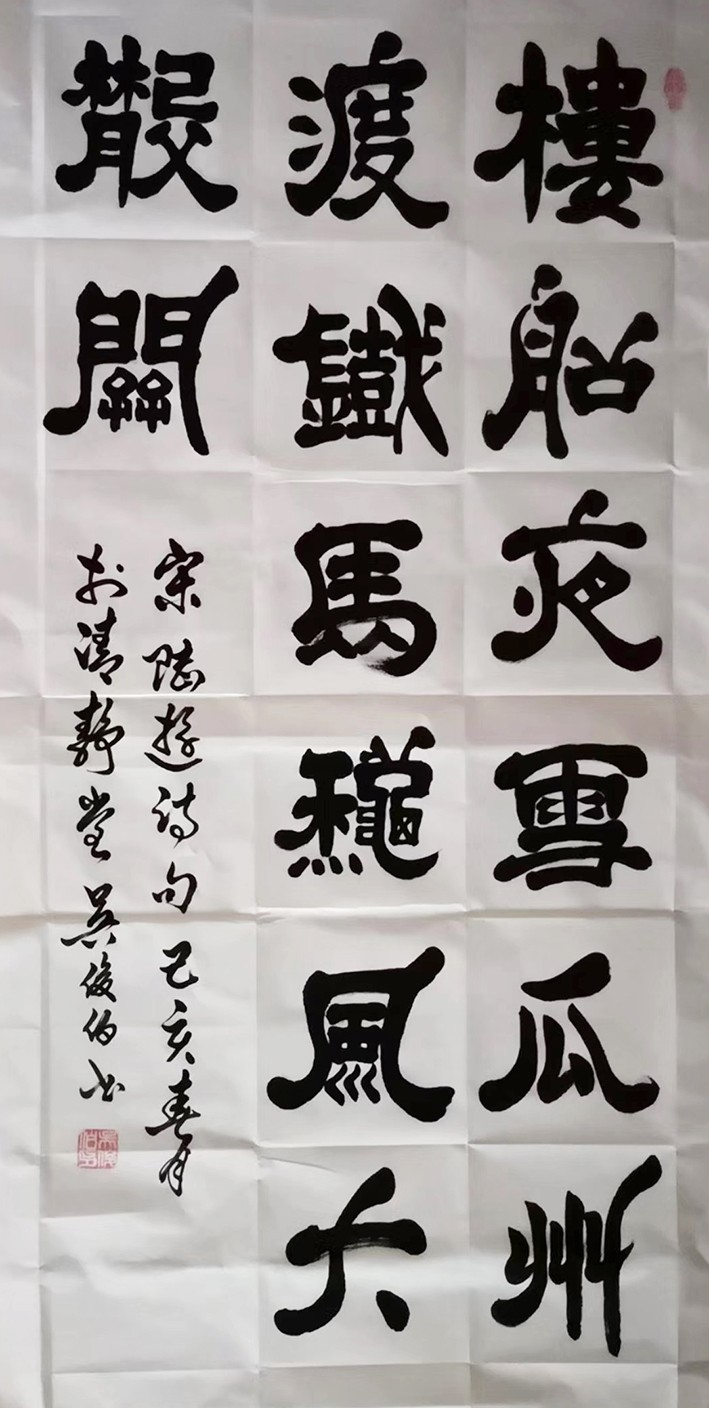 樓船夜雪瓜州
渡鐵馬龝風大
散關
宋陸遊詩句己亥春月
於清靜堂吳俊伯書